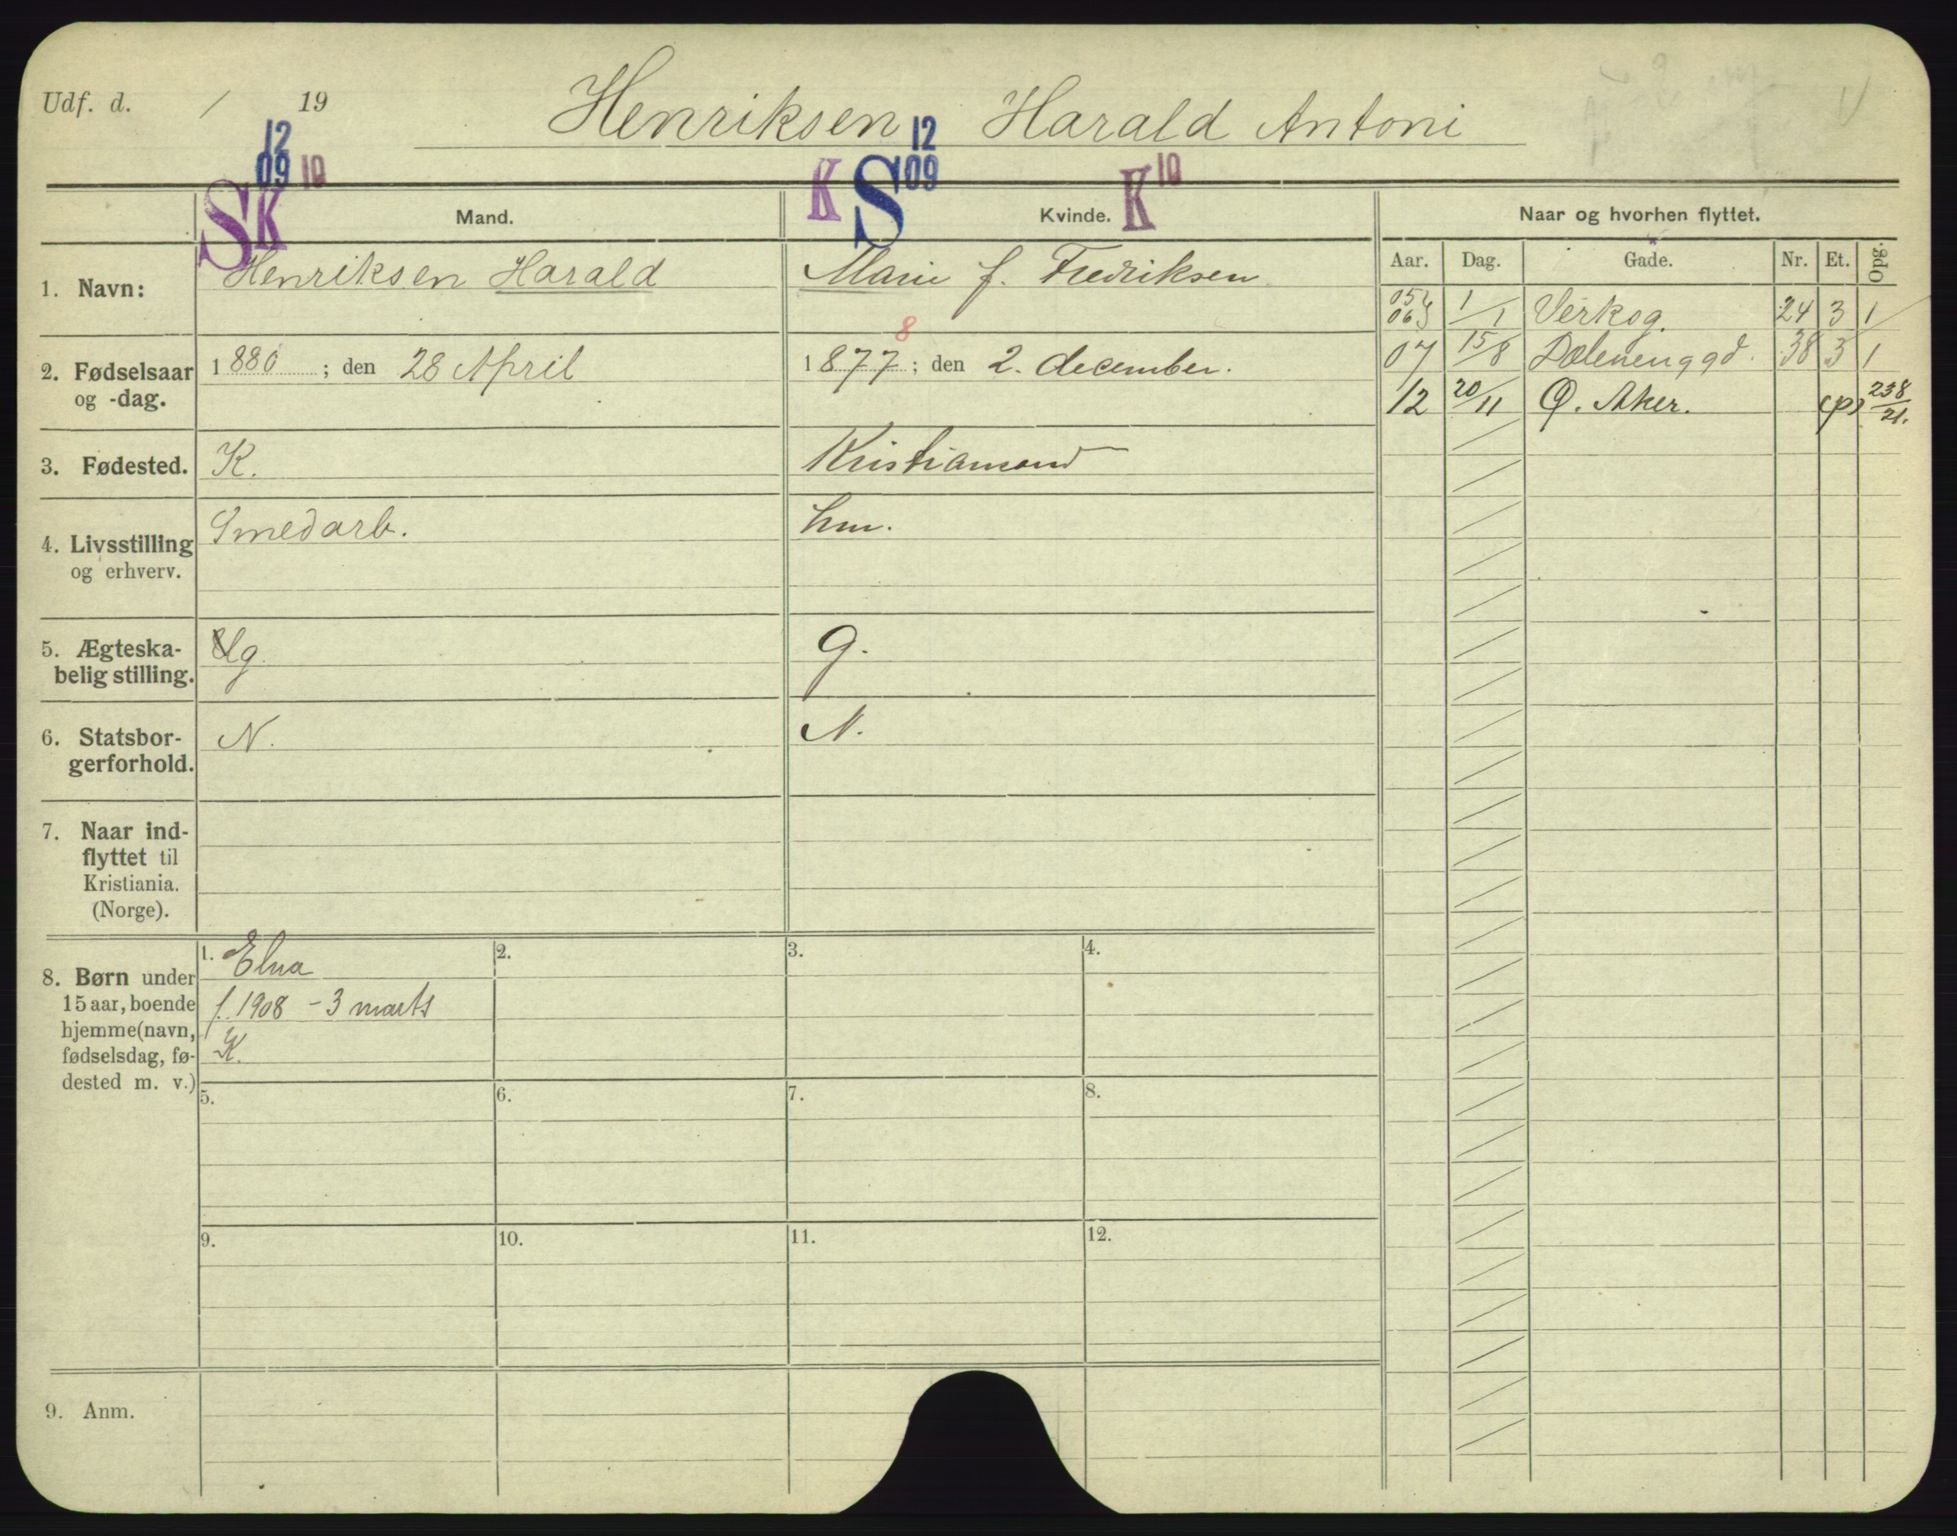 Udf. d. / 19 Henriksen Harald Antoni
12 12
09 10 K S 09 K 10
SK Mand. Kvinde. Naar og hvorhen flyttet.
Aar. Dag. Gade. Nr. Et. Opg.
1. Navn: Henriksen Harald Marie f. Fredriksen
05 06 1/1 Verksg. 24 3 1
07 15/8 Dælenenggd. 38 3 1
12 20/11 Ø. Aker. (p) 238/21.
8
2. Fødselsaar 1880 ; den 28 April 1877 ; den 2. december.
og -dag.
3. Fødested. K. Kristiansand
4. Livsstilling Smedarb. hm.
og erhverv.
5. Ægteska- Ug g.
belig stilling.
6. Statsbor- N. N.
gerforhold.
7. Naar ind-
flyttet til
Kristiania.
(Norge).
1. Elna 2. 3. 4.
8. Børn under
15 aar, boende f. 1908 - 3 marts
hjemme (navn,
fødselsdag, fø- K.
dested m. v.)
5. 6. 7. 8.
9. 10. 11. 12.
9. Anm.